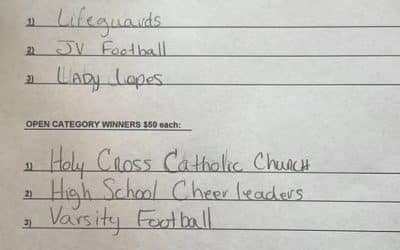 1) Lifeguards
2) JV Football
3) LADY Lopes
OPEN CATEGORY WINNERS $50 each:
1) Holy Cross Catholic Church
2) High School Cheerleaders
3) Varsity Football